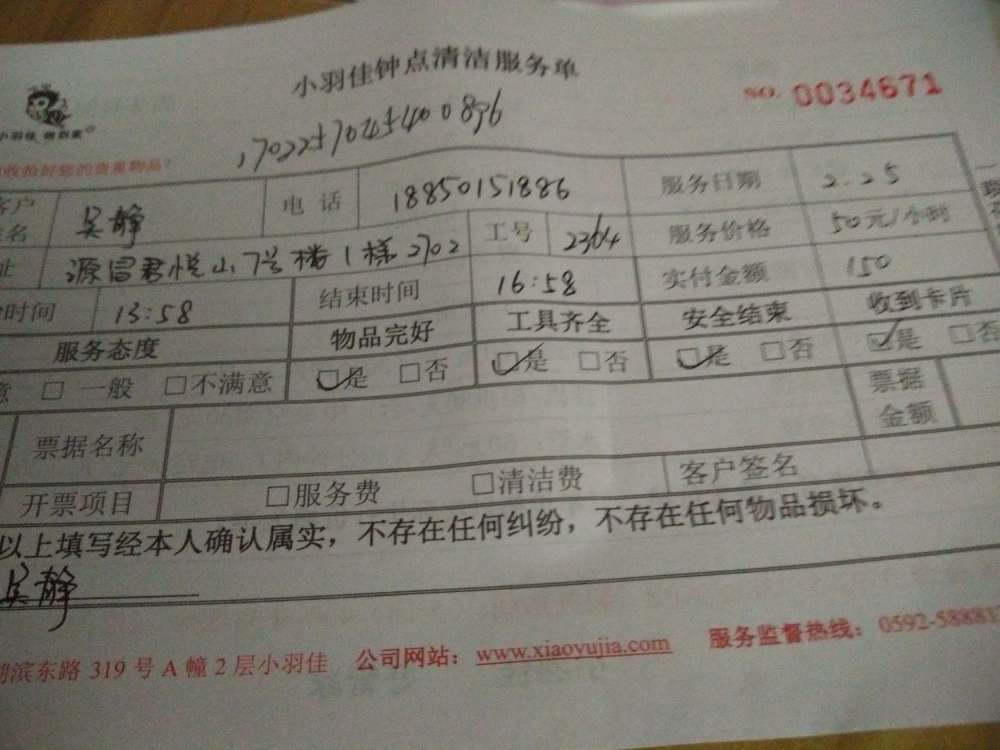 小羽佳钟点清洁服务单
NO. 0034671
小羽佳 做到家
收拾好您的贵重物品!
客户 吴静 电 话 18850151886 服务日期 2.25
名
址 源昌君悦山7号楼1梯2702 工号 2364 服务价格 50元/小时
时间 13:58 结束时间 16:58 实付金额 150
服务态度 物品完好 工具齐全 安全结束 收到卡片
意 □ 一般 □不满意 ☑是 □否 ☑是 □否 ☑是 □否 ☑是 □否
票据名称 票据金额
开票项目 □服务费 □清洁费 客户签名
以上填写经本人确认属实,不存在任何纠纷,不存在任何物品损坏。
吴静
湖滨东路 319 号 A 幢 2 层小羽佳 公司网站: www.xiaoyujia.com 服务监督热线: 0592-58881